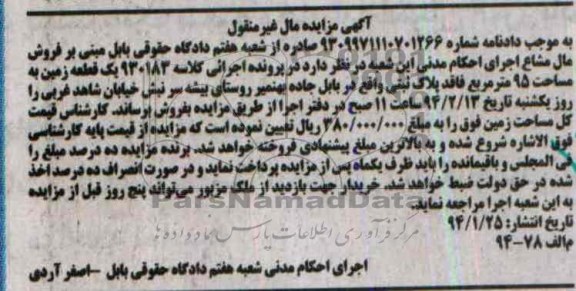 آگهی مزایده مال غیرمنقول
به موجب دادنامه شماره ۹۳۰۹۹۷۱۱۱۰۷۰۱۲۶۶ صادره از شعبه هفتم دادگاه حقوقی بابل مبنی بر فروش
مال مشاع اجرای احکام مدنی این شعبه در نظر دارد در پرونده اجرائی کلاسه ۹۳۰۱۸۳ یک قطعه زمین به
مساحت ۹۵ مترمربع فاقد پلاک ثبتی واقع در بابل جاده بهنمیر روستای بیشه سر نبش خیابان شاهد غربی را
روز یکشنبه تاریخ ۹۴/۲/۱۳ ساعت ۱۱ صبح در دفتر اجرا از طریق مزایده بفروش برساند. کارشناس قیمت
کل مساحت زمین فوق را به مبلغ ۳۸۰/۰۰۰/۰۰۰ ریال تعیین نموده است که مزایده از قیمت پایه کارشناسی
فوق الاشاره شروع شده و به بالاترین مبلغ پیشنهادی فروخته خواهد شد. برنده مزایده ده درصد مبلغ را
فی المجلس و باقیمانده را باید ظرف یکماه پس از مزایده پرداخت نماید و در صورت انصراف ده درصد اخذ
شده در حق دولت ضبط خواهد شد. خریدار جهت بازدید از ملک مزبور می‌تواند پنج روز قبل از مزایده
به این شعبه اجرا مراجعه نماید.
ParsNamadData
مرکز فرآوری اطلاعات پارس نماد داده ها
تاریخ انتشار: ۹۴/۱/۲۵
م/الف ۷۸-۹۴
اجرای احکام مدنی شعبه هفتم دادگاه حقوقی بابل -اصغر آردی